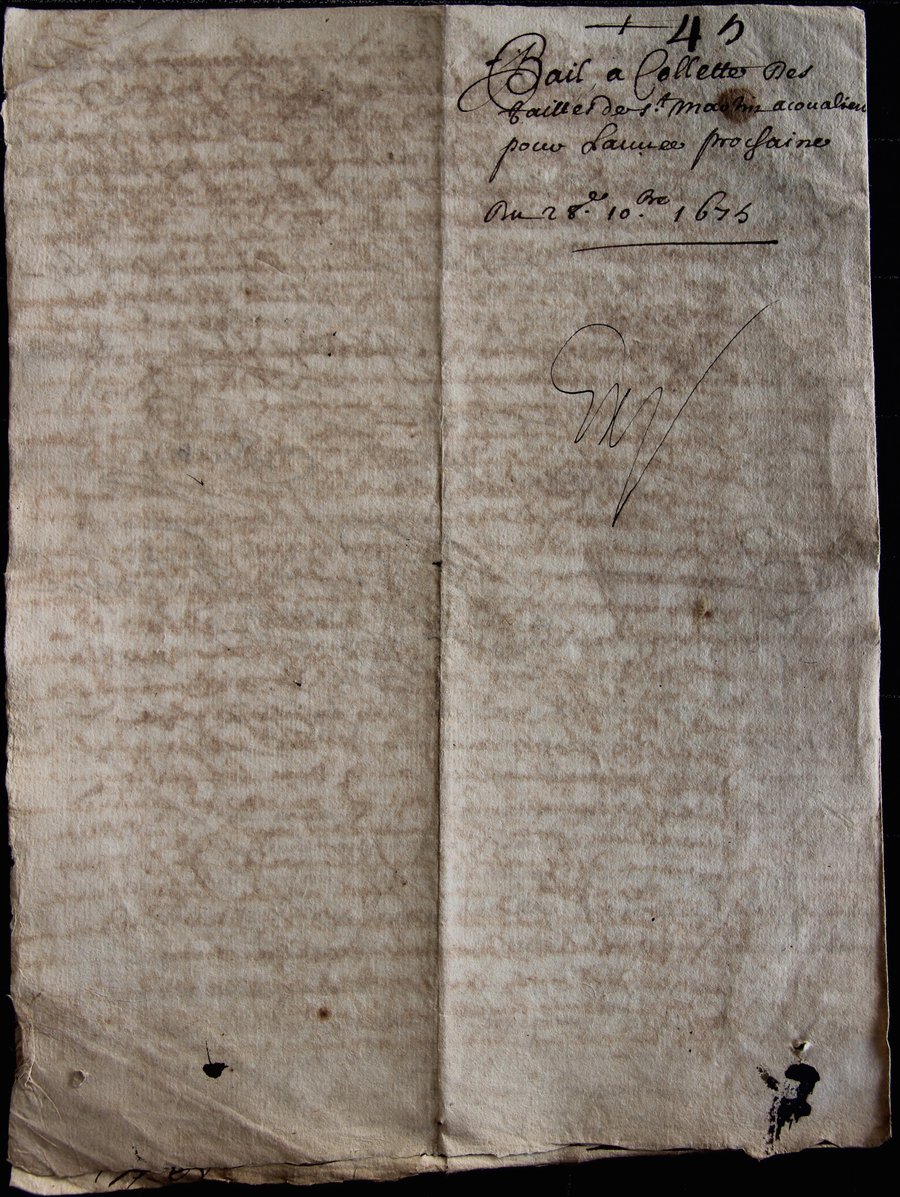 + 45
Bail a Collette Des
tailles de st. martin acoualieu
pour Lannee prochaine
Du 28e. 10.bre 1675
Exp